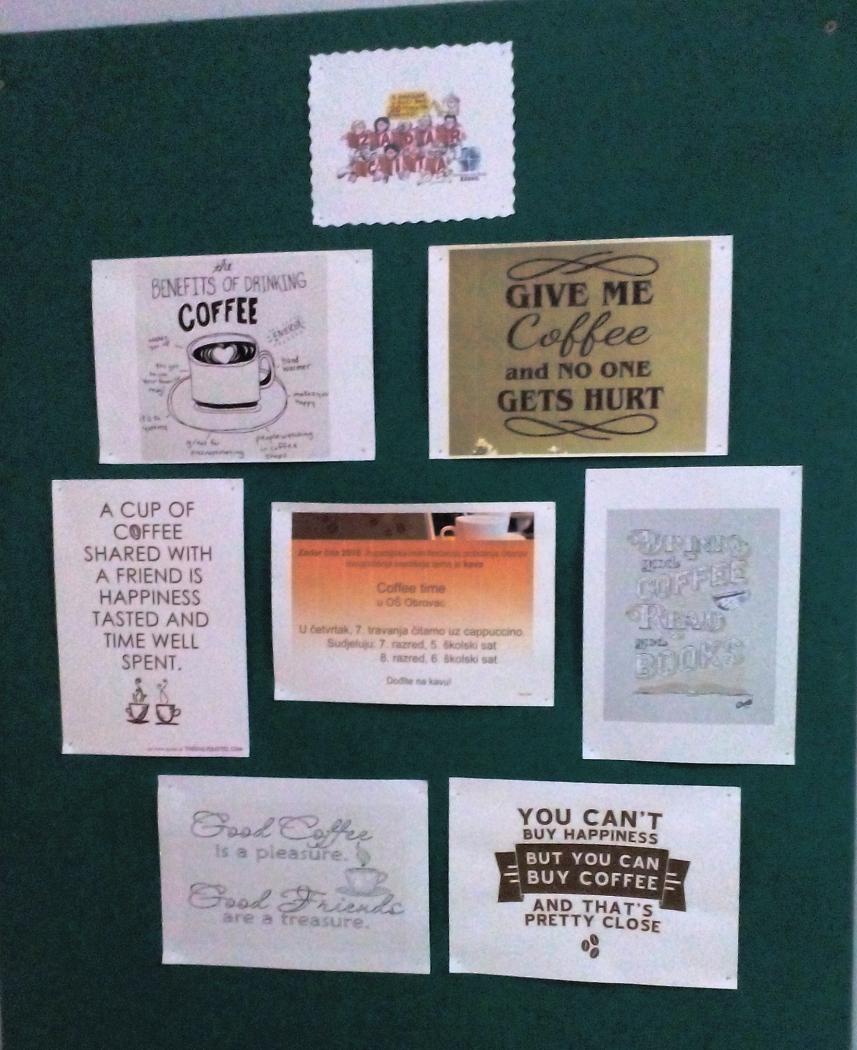 ZADAR
ČITA
the
BENEFITS OF DRINKING
COFFEE
ENERGY
makes
hand
warmer
makes you
happy
great for
people watching
in coffee
shops
GIVE ME
Coffee
and NO ONE
GETS HURT
A CUP OF
COFFEE
SHARED WITH
A FRIEND IS
HAPPINESS
TASTED AND
TIME WELL
SPENT.
Zadar čita 2016.
kava
Coffee time
u OŠ Obrovac
U četvrtak, 7. travanja čitamo uz cappuccino.
Sudjeluju: 7. razred, 5. školski sat
8. razred, 6. školski sat
Dođite na kavu!
DRINK
good
COFFEE
READ
good
BOOKS
Good Coffee
is a pleasure.
Good Friends
are a treasure.
YOU CAN'T
BUY HAPPINESS
BUT YOU CAN
BUY COFFEE
AND THAT'S
PRETTY CLOSE